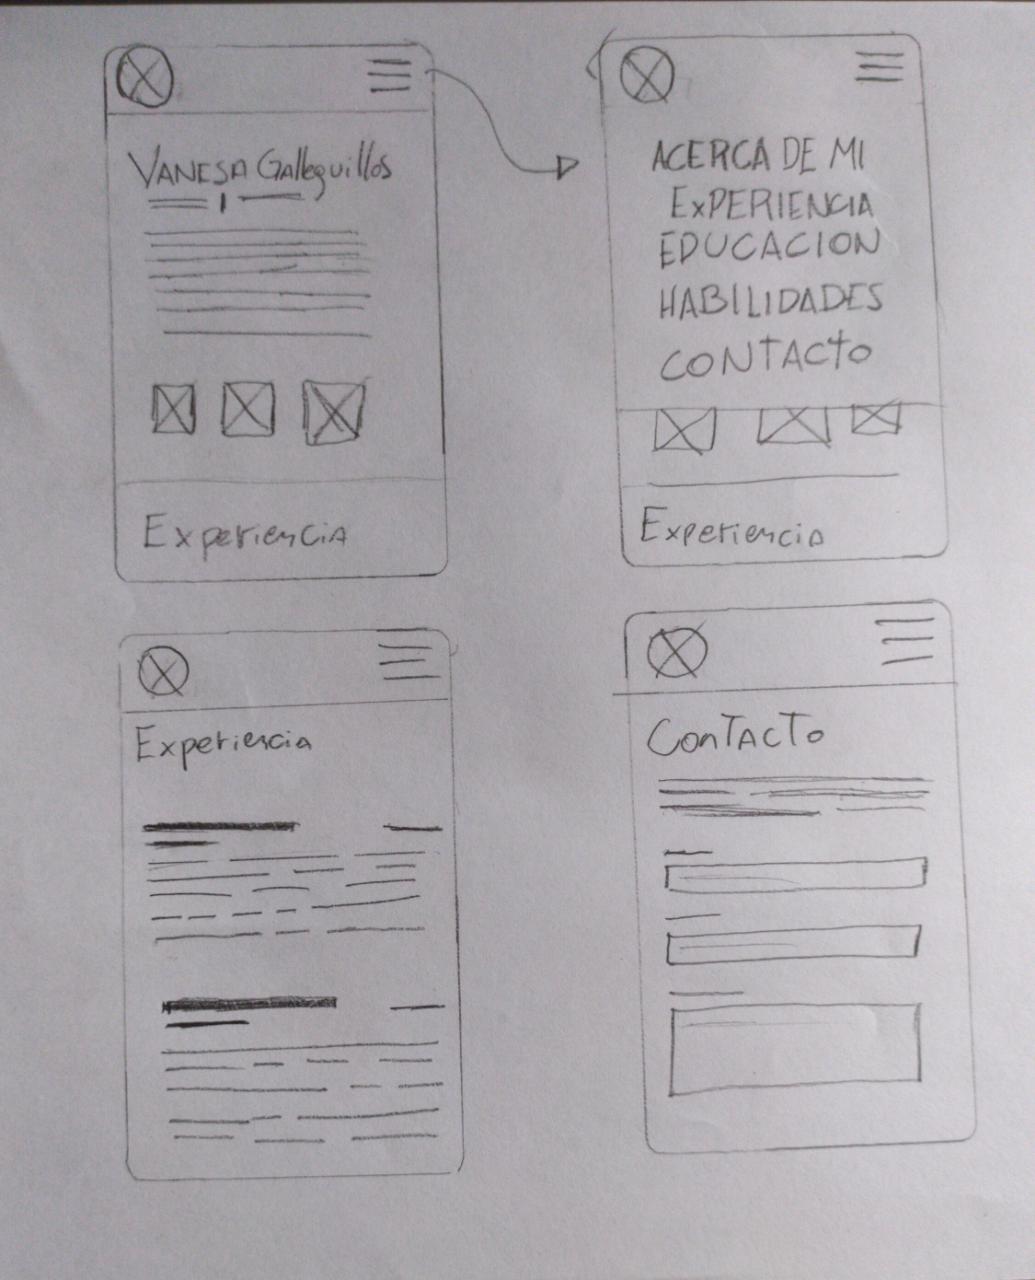 VANESA Galleguillos
Experiencia
ACERCA DE MI
EXPERIENCIA
EDUCACION
HABILIDADES
CONTACTO
Experiencia
Experiencia
Contacto